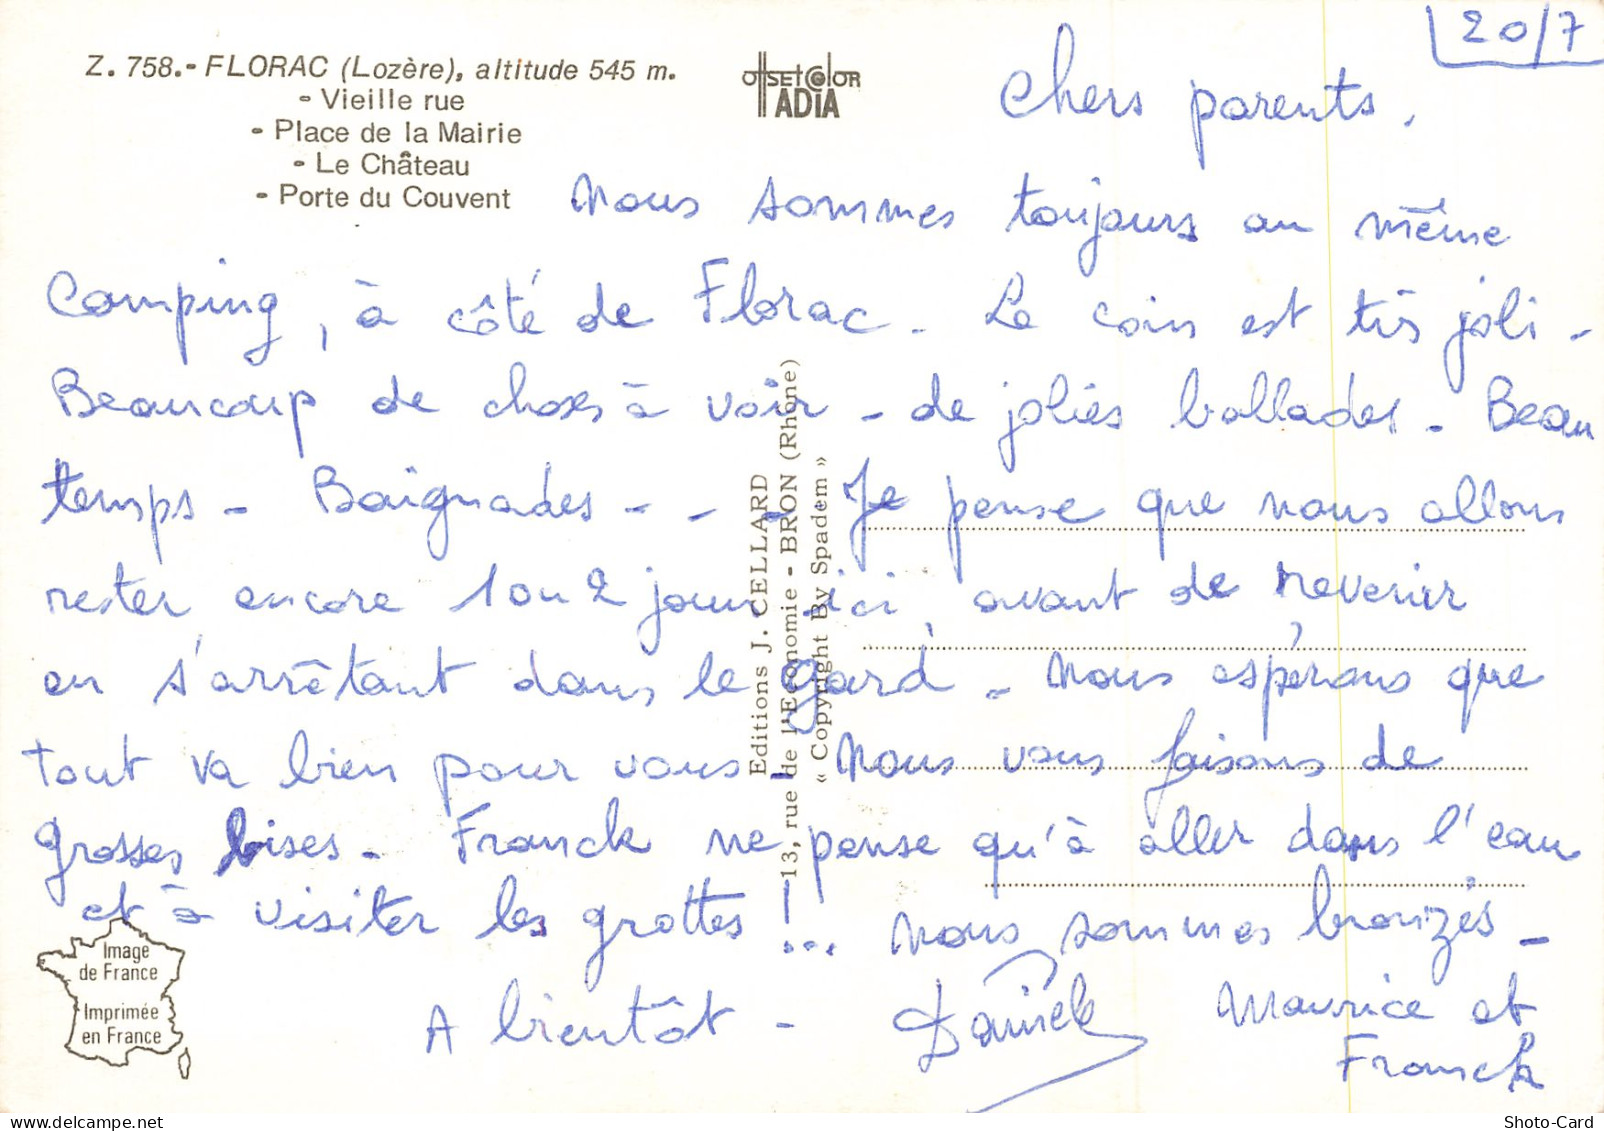 20/7
Z. 758.- FLORAC (Lozère), altitude 545 m.
- Vieille rue
- Place de la Mairie
- Le Château
- Porte du Couvent
OffSEt COlOR
ADIA
Chers parents.
Nous sommes toujours au même
Camping, à côté de Florac. Le coin est très joli.
Beaucoup de choses à voir - de jolies ballades. Beau
temps - Baignades - - - Je pense que nous allons
rester encore 1 ou 2 jours ici, avant de revenir
en s'arrêtant dans le gard. Nous espérons que
tout va bien pour vous. Nous vous faisons de
grosses bises. Franck ne pense qu'à aller dans l'eau
et à visiter les grottes !... Nous sommes bronzés -
A bientôt - Maurice et
Franck
Editions J. CELLARD
13, rue de l'Economie - BRON (Rhône)
« Copyright By Spadem »
Image
de France
Imprimée
en France
Shoto-Card